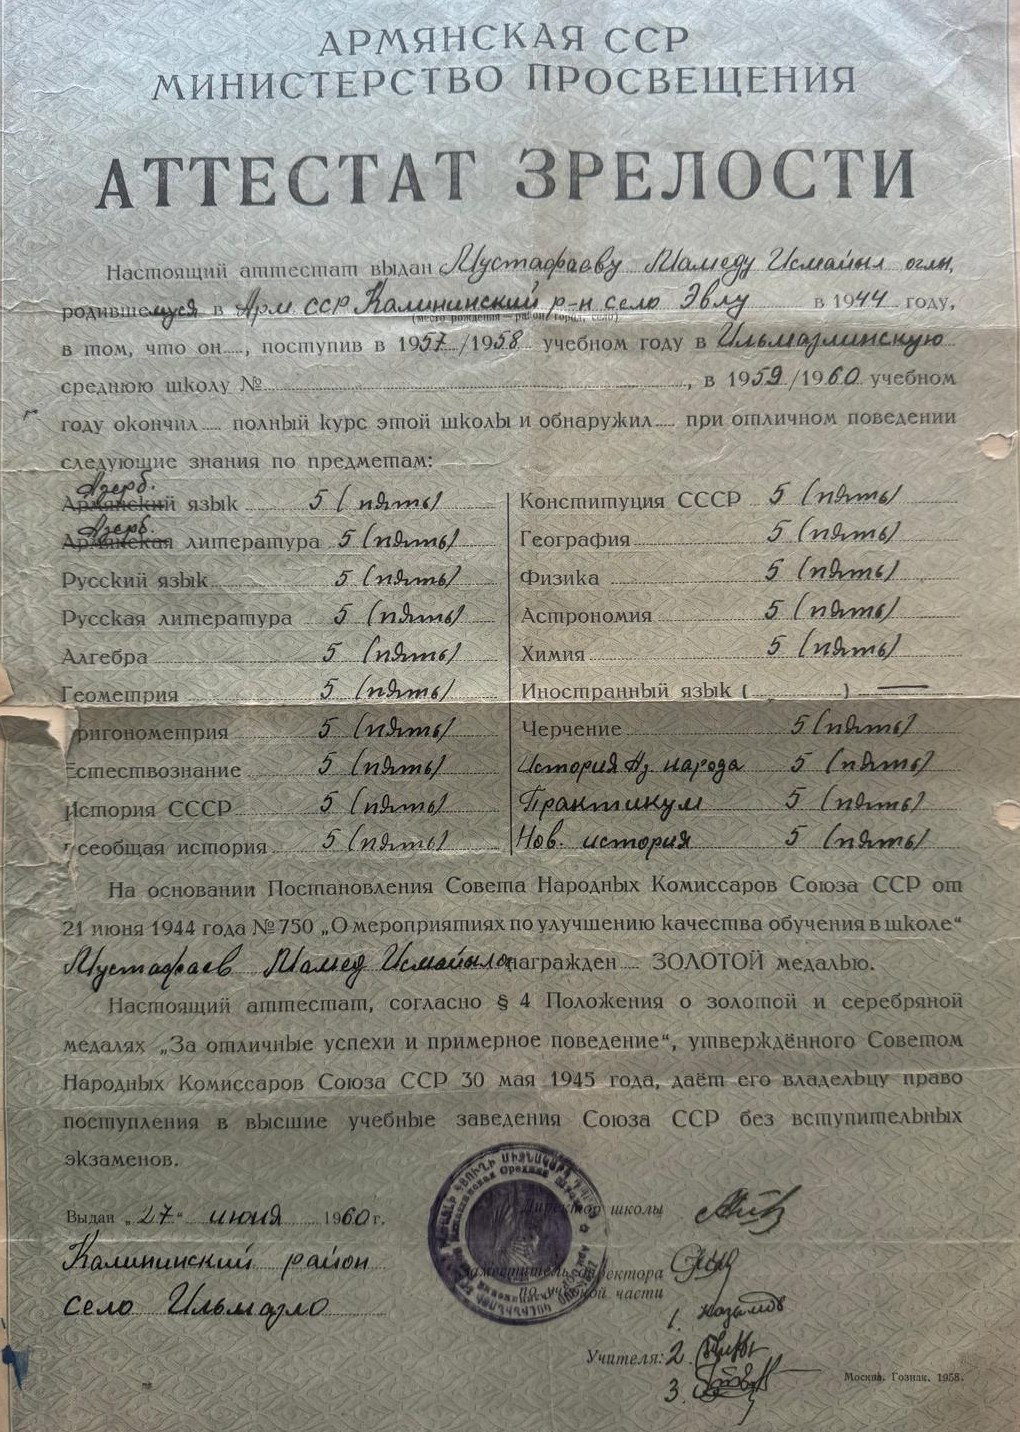 АРМЯНСКАЯ ССР
МИНИСТЕРСТВО ПРОСВЕЩЕНИЯ
АТТЕСТАТ ЗРЕЛОСТИ
Настоящий аттестат выдан Мустафаеву Мамеду Исмайыл оглы,
родившемуся в Арм ССР Калининский р-н село Эвлу в 1944 году,
(место рождения — район, город, село)
в том, что он, поступив в 1957/1958 учебном году в Ильмазлинскую
среднюю школу №, в 1959/1960 учебном
году окончил полный курс этой школы и обнаружил при отличном поведении
следующие знания по предметам:
Азерб.
Армянский язык 5 (пять)
Азерб.
Армянская литература 5 (пять)
Русский язык 5 (пять)
Русская литература 5 (пять)
Алгебра 5 (пять)
Геометрия 5 (пять)
ригонометрия 5 (пять)
Естествознание 5 (пять)
История СССР 5 (пять)
сеобщая история 5 (пять)
Конституция СССР 5 (пять)
География 5 (пять)
Физика 5 (пять)
Астрономия 5 (пять)
Химия 5 (пять)
Иностранный язык ( ) —
Черчение 5 (пять)
История Аз. народа 5 (пять)
Практикум 5 (пять)
Нов. история 5 (пять)
На основании Постановления Совета Народных Комиссаров Союза ССР от
21 июня 1944 года № 750 „О мероприятиях по улучшению качества обучения в школе“
Мустафаев Мамед Исмайыл о награжден ЗОЛОТОЙ медалью.
Настоящий аттестат, согласно § 4 Положения о золотой и серебряной
медалях „За отличные успехи и примерное поведение“, утверждённого Советом
Народных Комиссаров Союза ССР 30 мая 1945 года, даёт его владельцу право
поступления в высшие учебные заведения Союза ССР без вступительных
экзаменов.
Выдан „27“ июня 1960 г.
Калининский район
село Ильмазло
Директор школы
Заместитель директора
по учебной части
Учителя: 1.
2.
3.
Москва. Гознак. 1958.